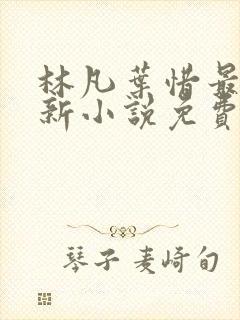 林凡葉惜最
新小説免費
琴子 麦崎旬